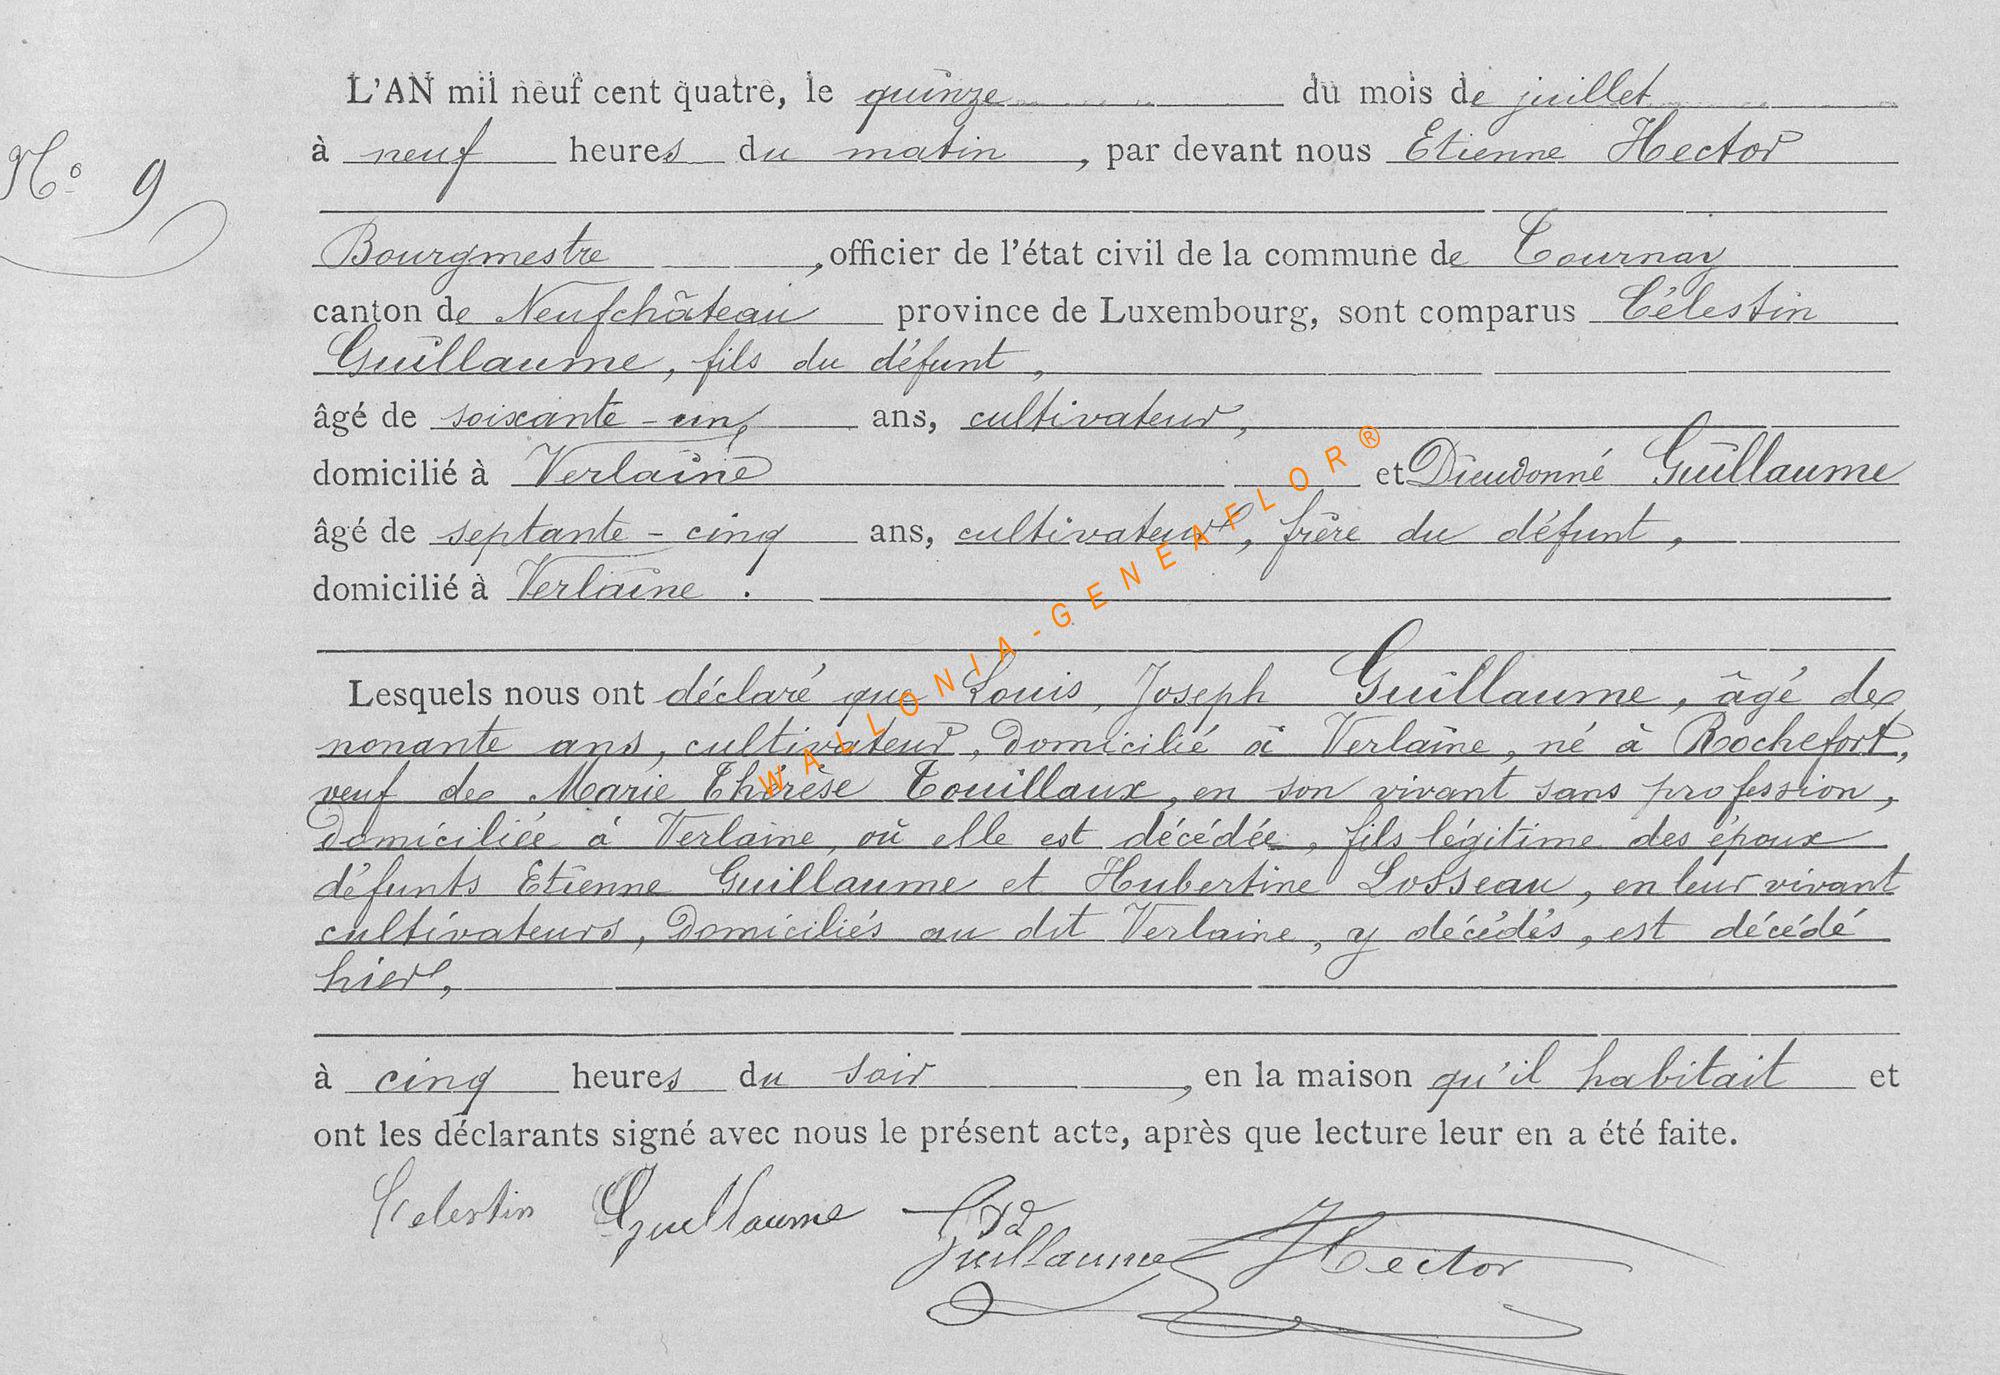 L'AN mil neuf cent quatre, le quinze du mois de juillet
N° 9
à neuf heures du matin, par devant nous Etienne Hector
Bourgmestre, officier de l'état civil de la commune de Tournay
canton de Neufchâteau province de Luxembourg, sont comparus Célestin
Guillaume, fils du défunt,
âgé de soixante-cinq ans, cultivateur,
domicilié à Verlaine et Dieudonné Guillaume
âgé de septante-cinq ans, cultivateur, frère du défunt,
domicilié à Verlaine.
Lesquels nous ont déclaré que Louis, Joseph Guillaume, âgé de
nonante ans, cultivateur, domicilié à Verlaine, né à Rochefort,
veuf de Marie Thérèse Touillaux, en son vivant sans profession,
domiciliée à Verlaine, où elle est décédée, fils légitime des époux
défunts Etienne Guillaume et Hubertine Losseau, en leur vivant
cultivateurs, domiciliés au dit Verlaine, y décédés, est décédé
hier,
à cinq heures du soir, en la maison qu'il habitait et
ont les déclarants signé avec nous le présent acte, après que lecture leur en a été faite.
Celestin Guillaume Guillaume Hector
WALLONIA-GENEAFLOR®